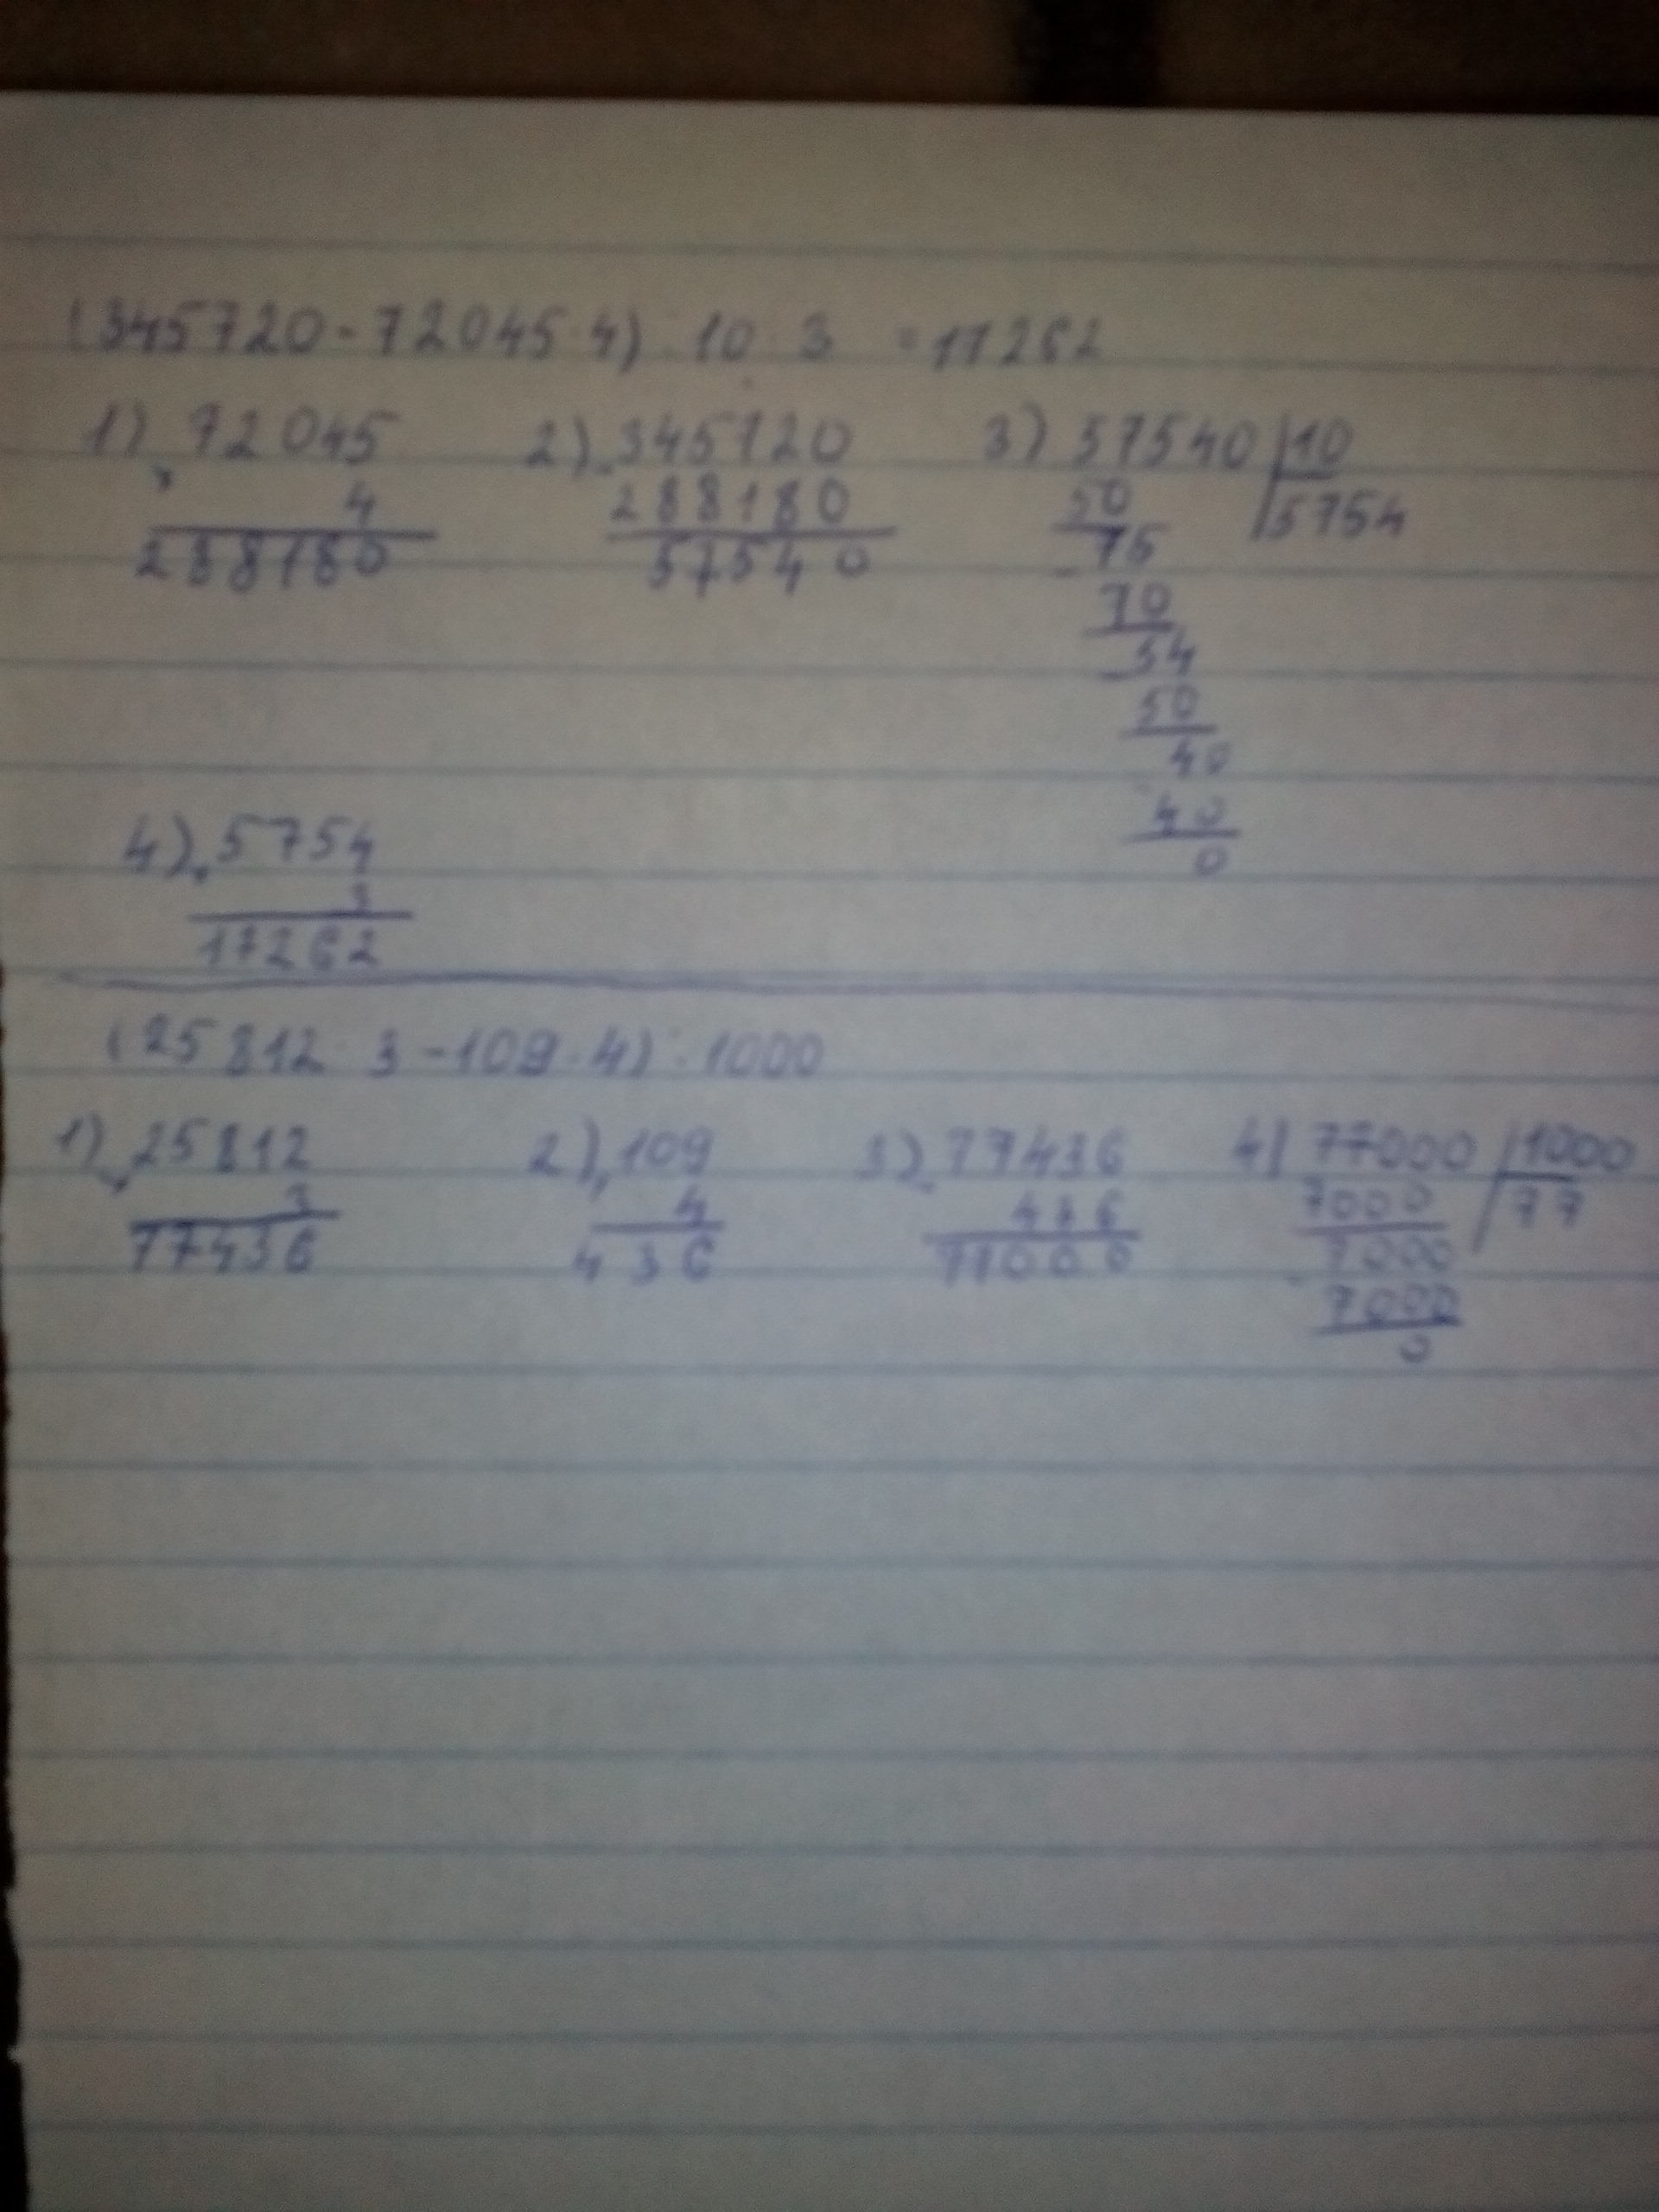 (345720-72045·4):10·3 =17262
1) 72045 2) 345720 3) 57540 | 10
× 4 - 288180 50 | 5754
288180 57540 75
- 70
54
- 50
40
40
0
4) × 5754
3
17262
(25812·3-109·4):1000
1) × 25812 2) × 109 3) - 77436 4) 77000 | 1000
3 4 436 7000 | 77
77436 436 77000 7000
- 7000
0